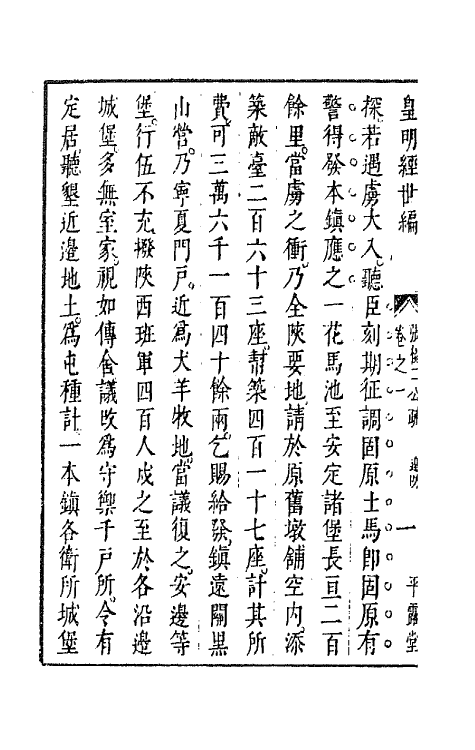 皇明經世編 卷之一 一 平露堂
探若遇虜大入聽臣刻期征調固原士馬即固原有
警得發本鎮應之一花馬池至安定諸堡長亘二百
餘里當虜之衝乃全陝要地請於原舊墩鋪空內添
築敵臺二百六十三座幇築四百一十七座計其所
費可三萬六千一百四十餘兩乞賜給發鎮遠關黑
山營乃寧夏門戶近為犬羊牧地當議復之安邊等
堡行伍不充撥陝西班軍四百人戍之至於各沿邊
城堡多無室家視如傳舍議改為守禦千戶所令有
定居聽墾近邊地土為屯種計一本鎮各衛所城堡